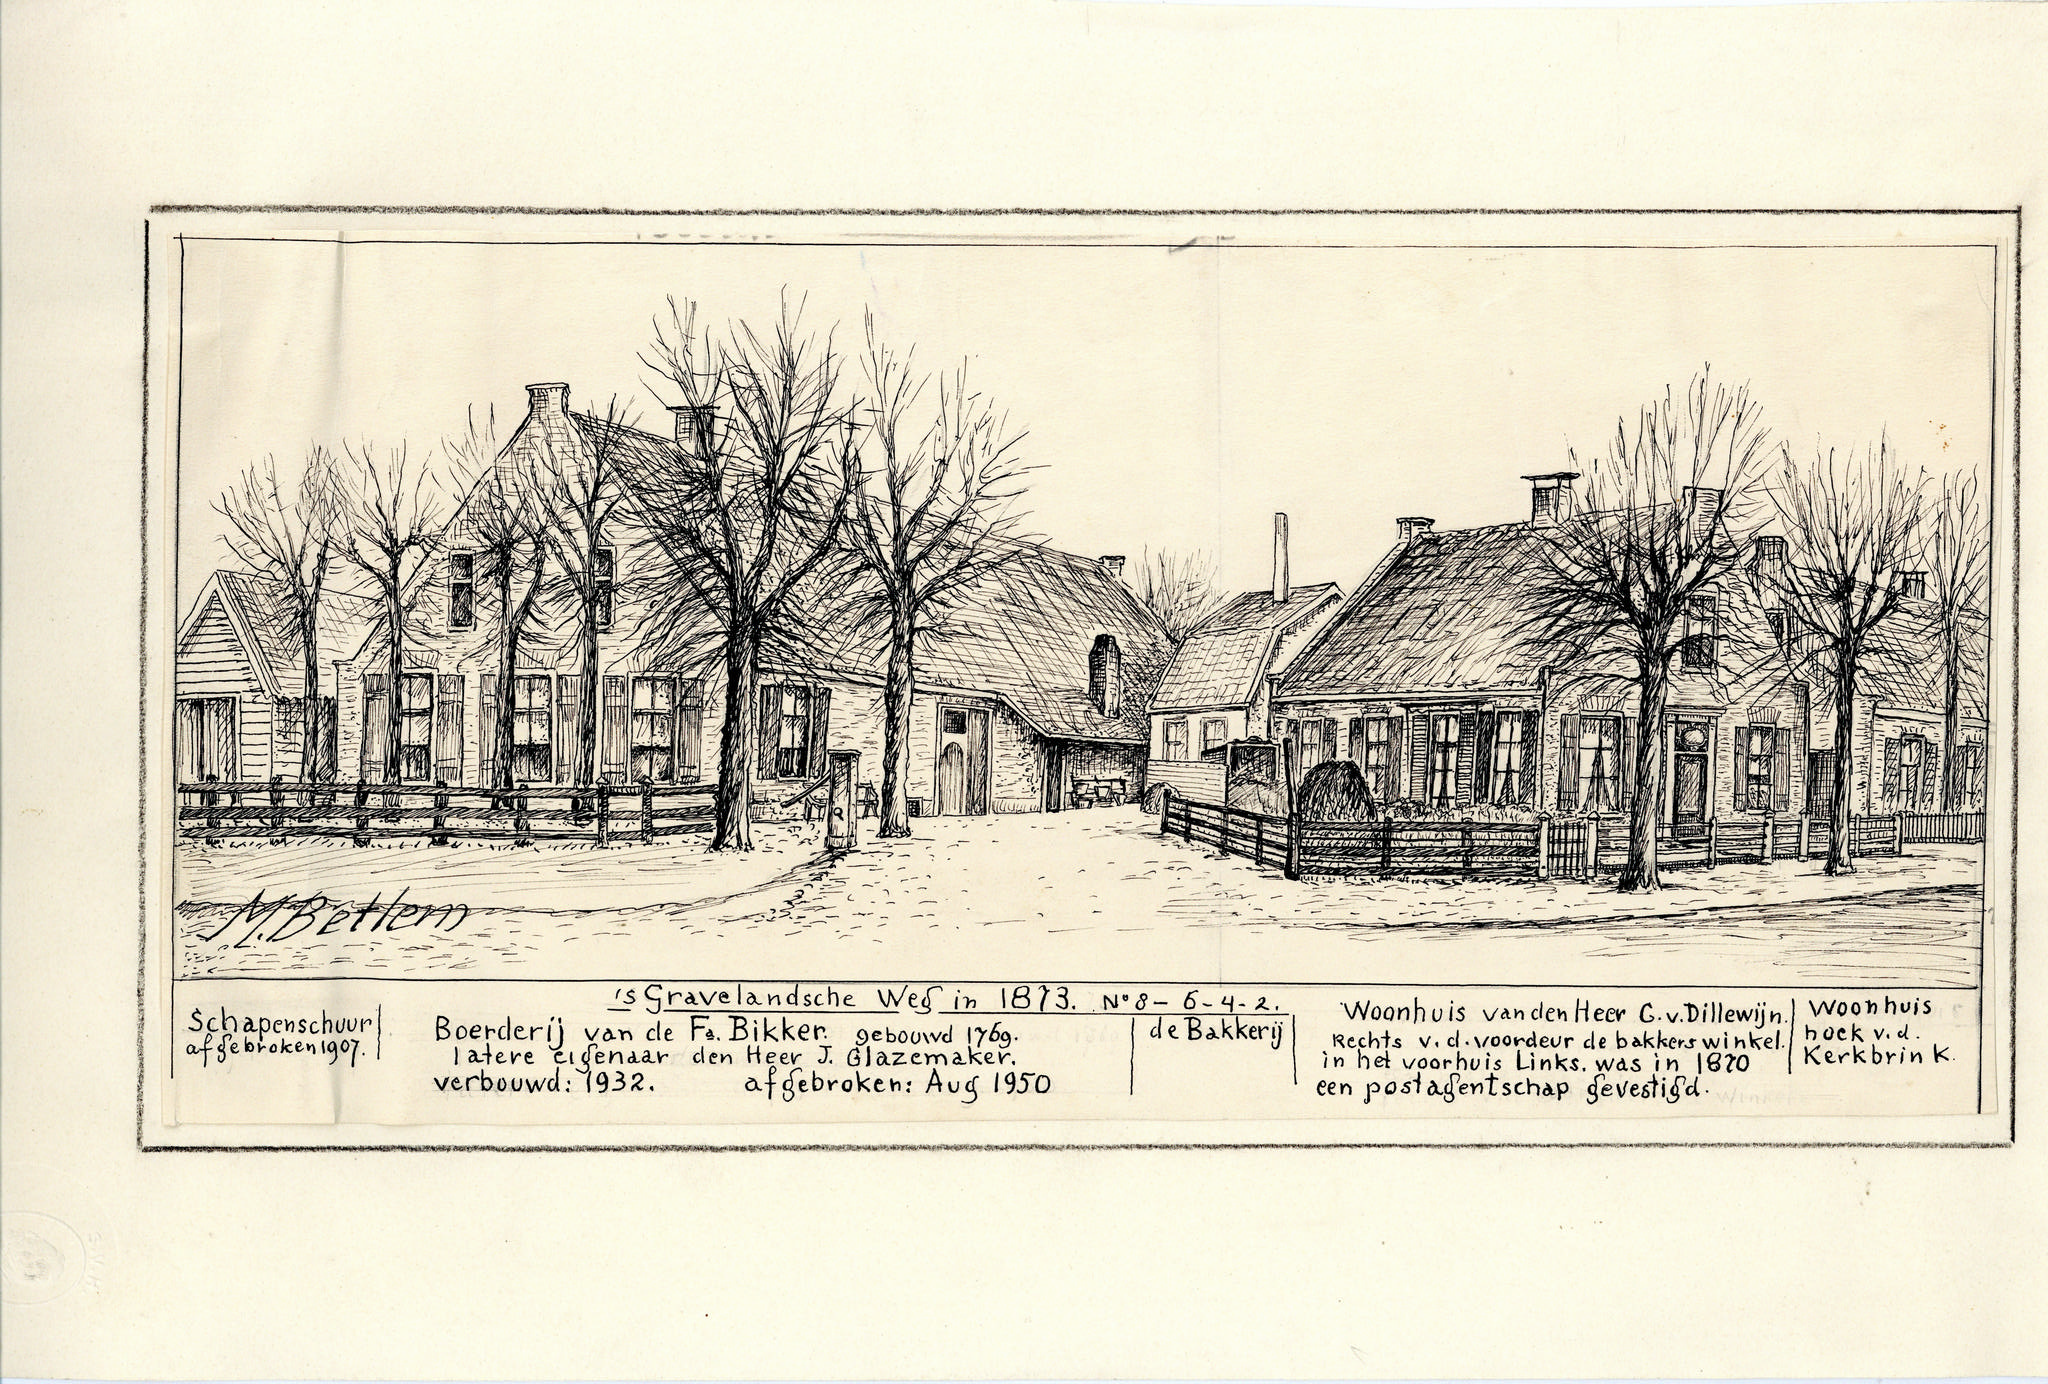 M. Betlem
's Gravelandsche Weg in 1873. No 8 - 6 - 4 - 2.
Schapenschuur
afgebroken 1907.
Boerderij van de Fa. Bikker. gebouwd 1769.
latere eigenaar den Heer J. Glazemaker.
verbouwd: 1932. afgebroken: Aug 1950
de Bakkerij
Woonhuis van den Heer G. v. Dillewijn.
Rechts v. d. voordeur de bakkerswinkel.
in het voorhuis Links. was in 1870
een postagentschap gevestigd.
Woonhuis
hoek v. d.
Kerkbrink.